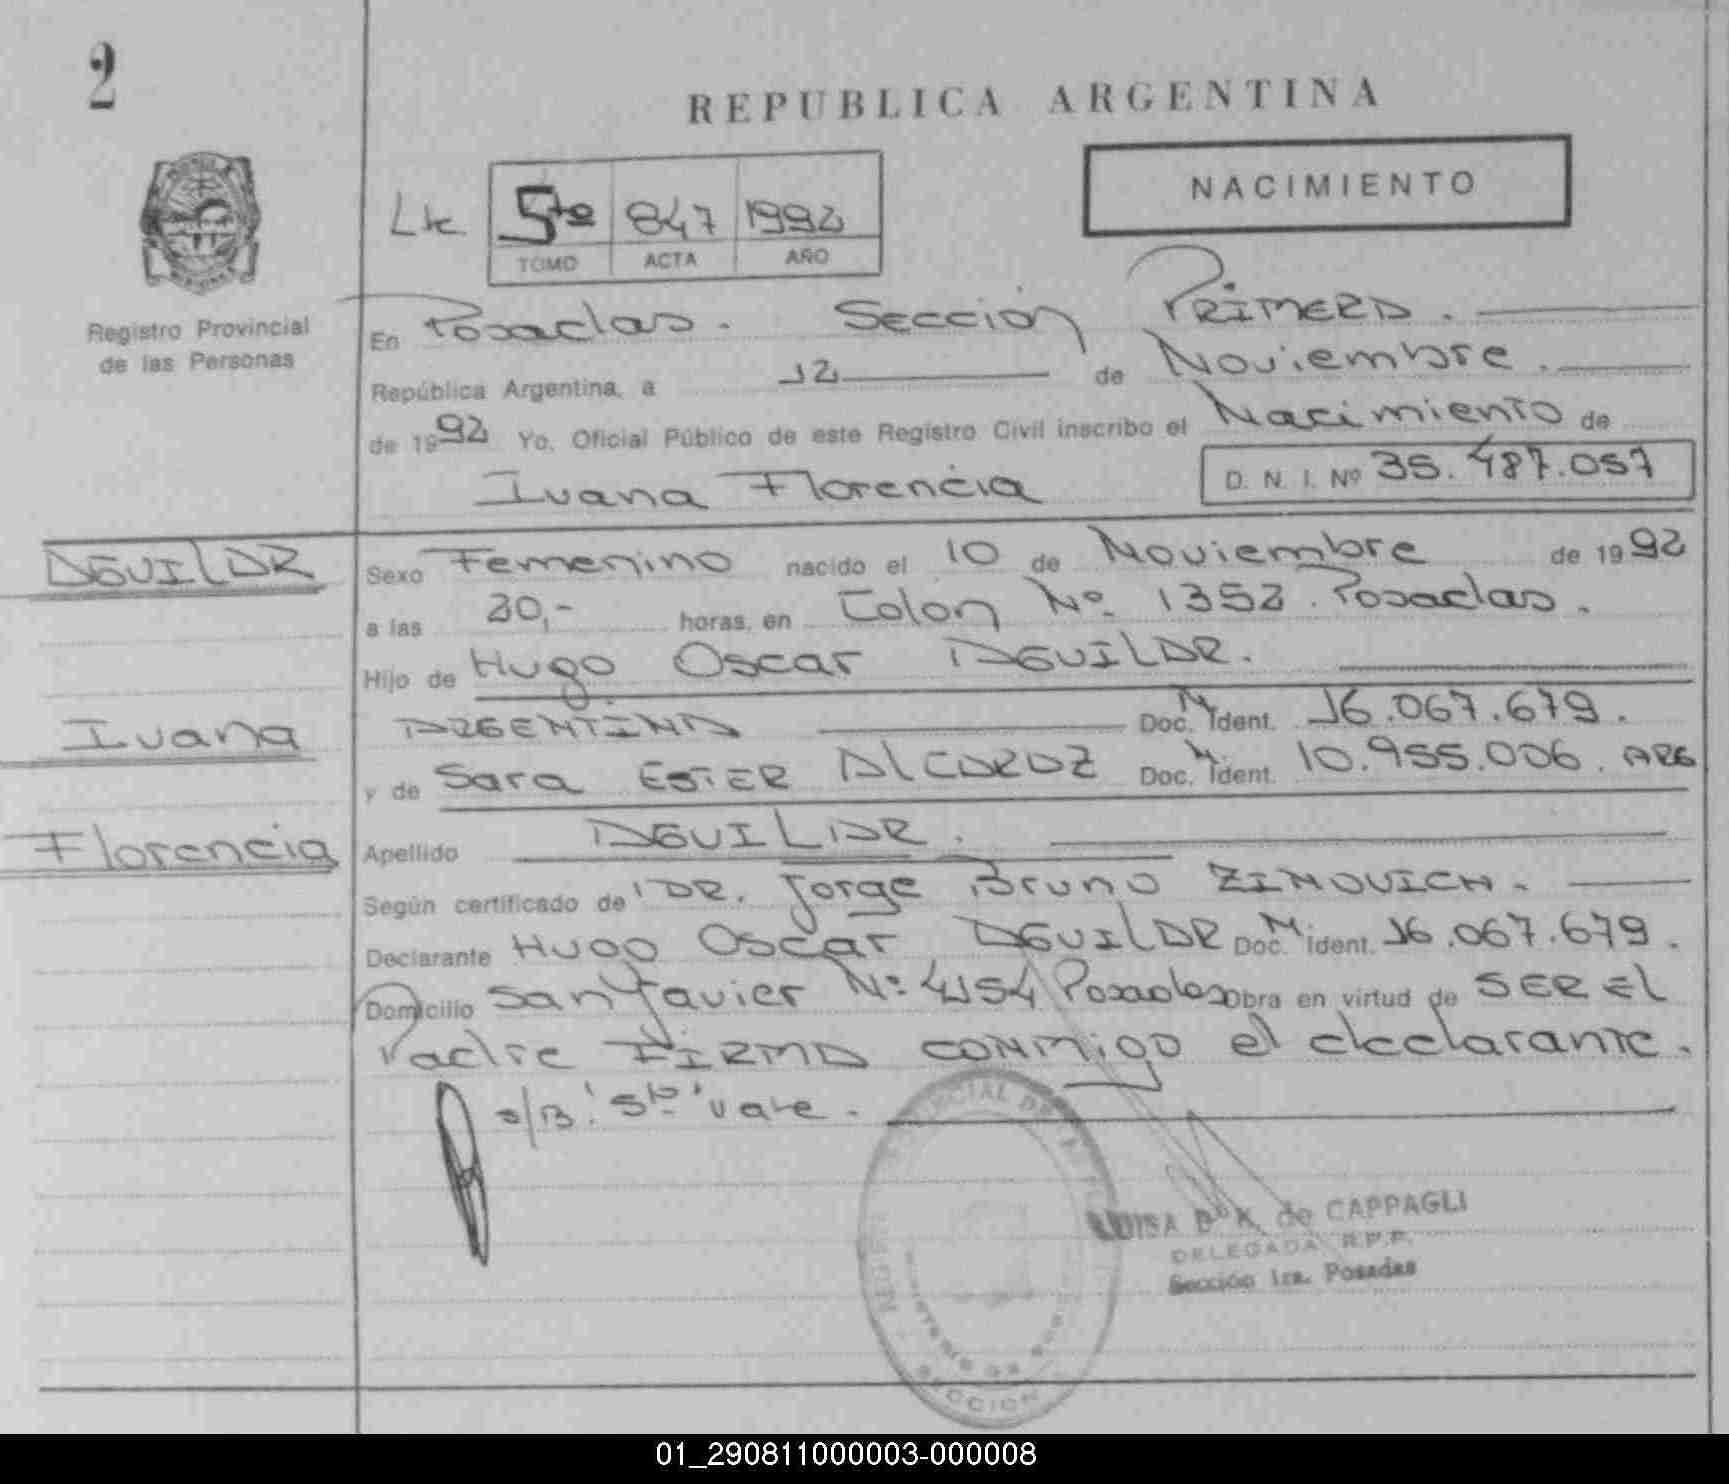 2
REPUBLICA ARGENTINA
NACIMIENTO
5to 847 1992
TOMO ACTA AÑO
Registro Provincial
de las Personas
En Posadas. Sección PRIMERA.
República Argentina, a 12 de Noviembre.
de 1992 Yo, Oficial Público de este Registro Civil inscribo el Nacimiento de
Ivana Florencia D. N. I. Nº 35.487.057
AGUILAR
Ivana
Florencia
Sexo Femenino nacido el 10 de Noviembre de 1992
a las 20,- horas, en Colon Nº 1352. Posadas.
Hijo de Hugo Oscar AGUILAR.
ARGENTINA Doc. M Ident. 16.067.679.
y de Sara ESTER AlCARAZ Doc. M Ident. 10.955.006. ARG
Apellido AGUILAR.
Según certificado de DR. Jorge Bruno ZINOVICH.
Declarante HUGO Oscar AGUILAR Doc. M Ident. 16.067.679.
Domicilio San Javier Nº 4154 Posadas obra en virtud de SER El
Padre FIRMA CONMigo el declarante.
s/B: 5to vale.
LUISA B. K. de CAPPAGLI
DELEGADA R.P.P.
Sección 1ra. Posadas
01_290811000003-000008